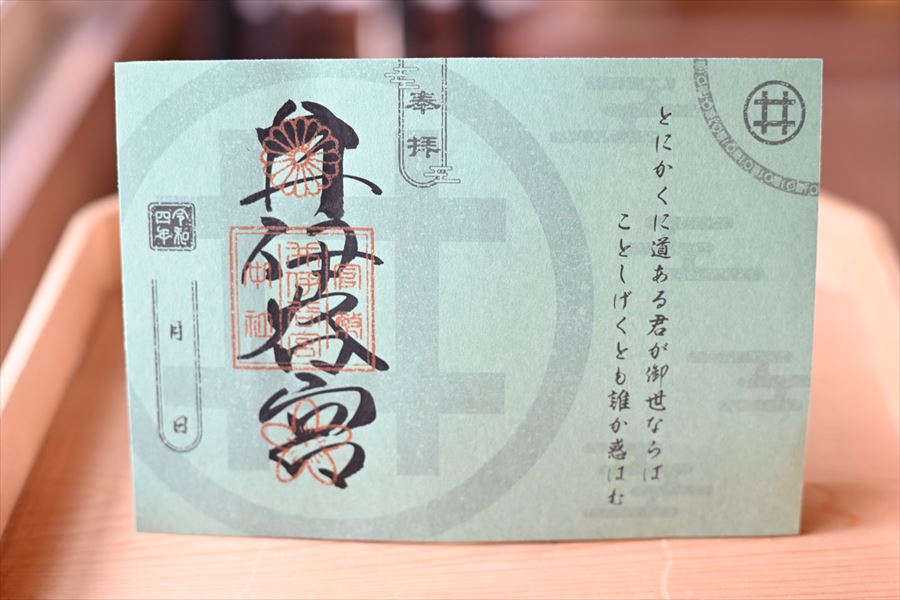 とにかくに道ある君が御世ならは
ことしげくとも誰か惑はむ
奉拝
井伊谷宮
官幣
井伊谷宮
中社
令和
四年
月 日